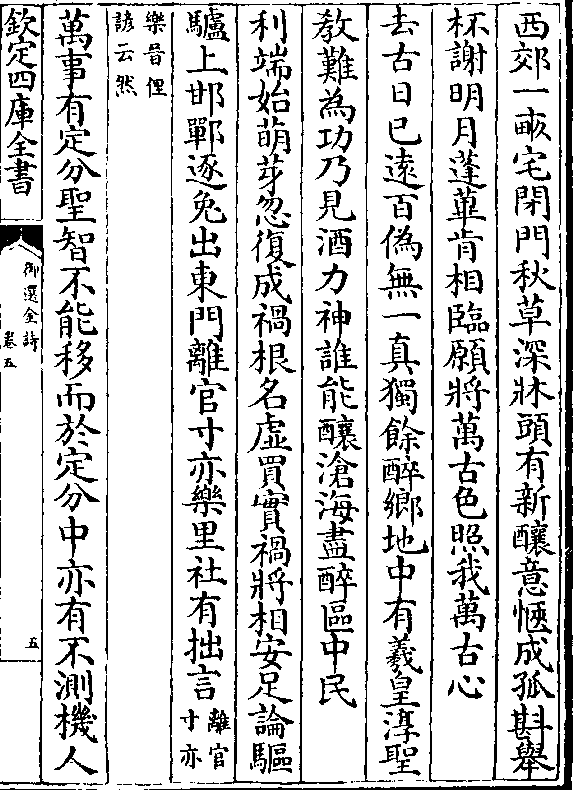 西郊一畝宅閉門秋草深牀頭有新釀意愜成孤斟舉
杯謝明月蓬蓽肯相臨願將萬古色照我萬古心
去古日已遠百偽無一真獨餘醉鄉地中有羲皇淳聖
教難為功乃見酒力神誰能釀滄海盡醉區中民
利端始萌芽忽復成禍根名虛買實禍將相安足論驅
驢上邯鄲逐兔出東門離官寸亦樂里社有拙言離官寸亦
樂昔俚諺云然
萬事有定分聖智不能移而於定分中亦有不測機人
欽定四庫全書
御選金詩
卷五
五